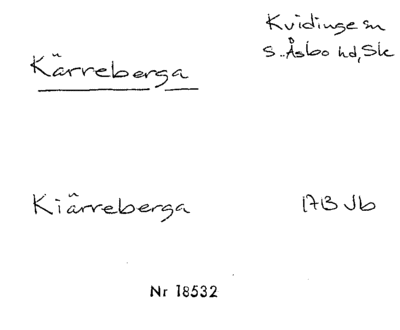 Kvidinge sn
Kärreberga
S. Åsbo hd, Sk
Kiärreberga
1713 Jb
Nr 18532